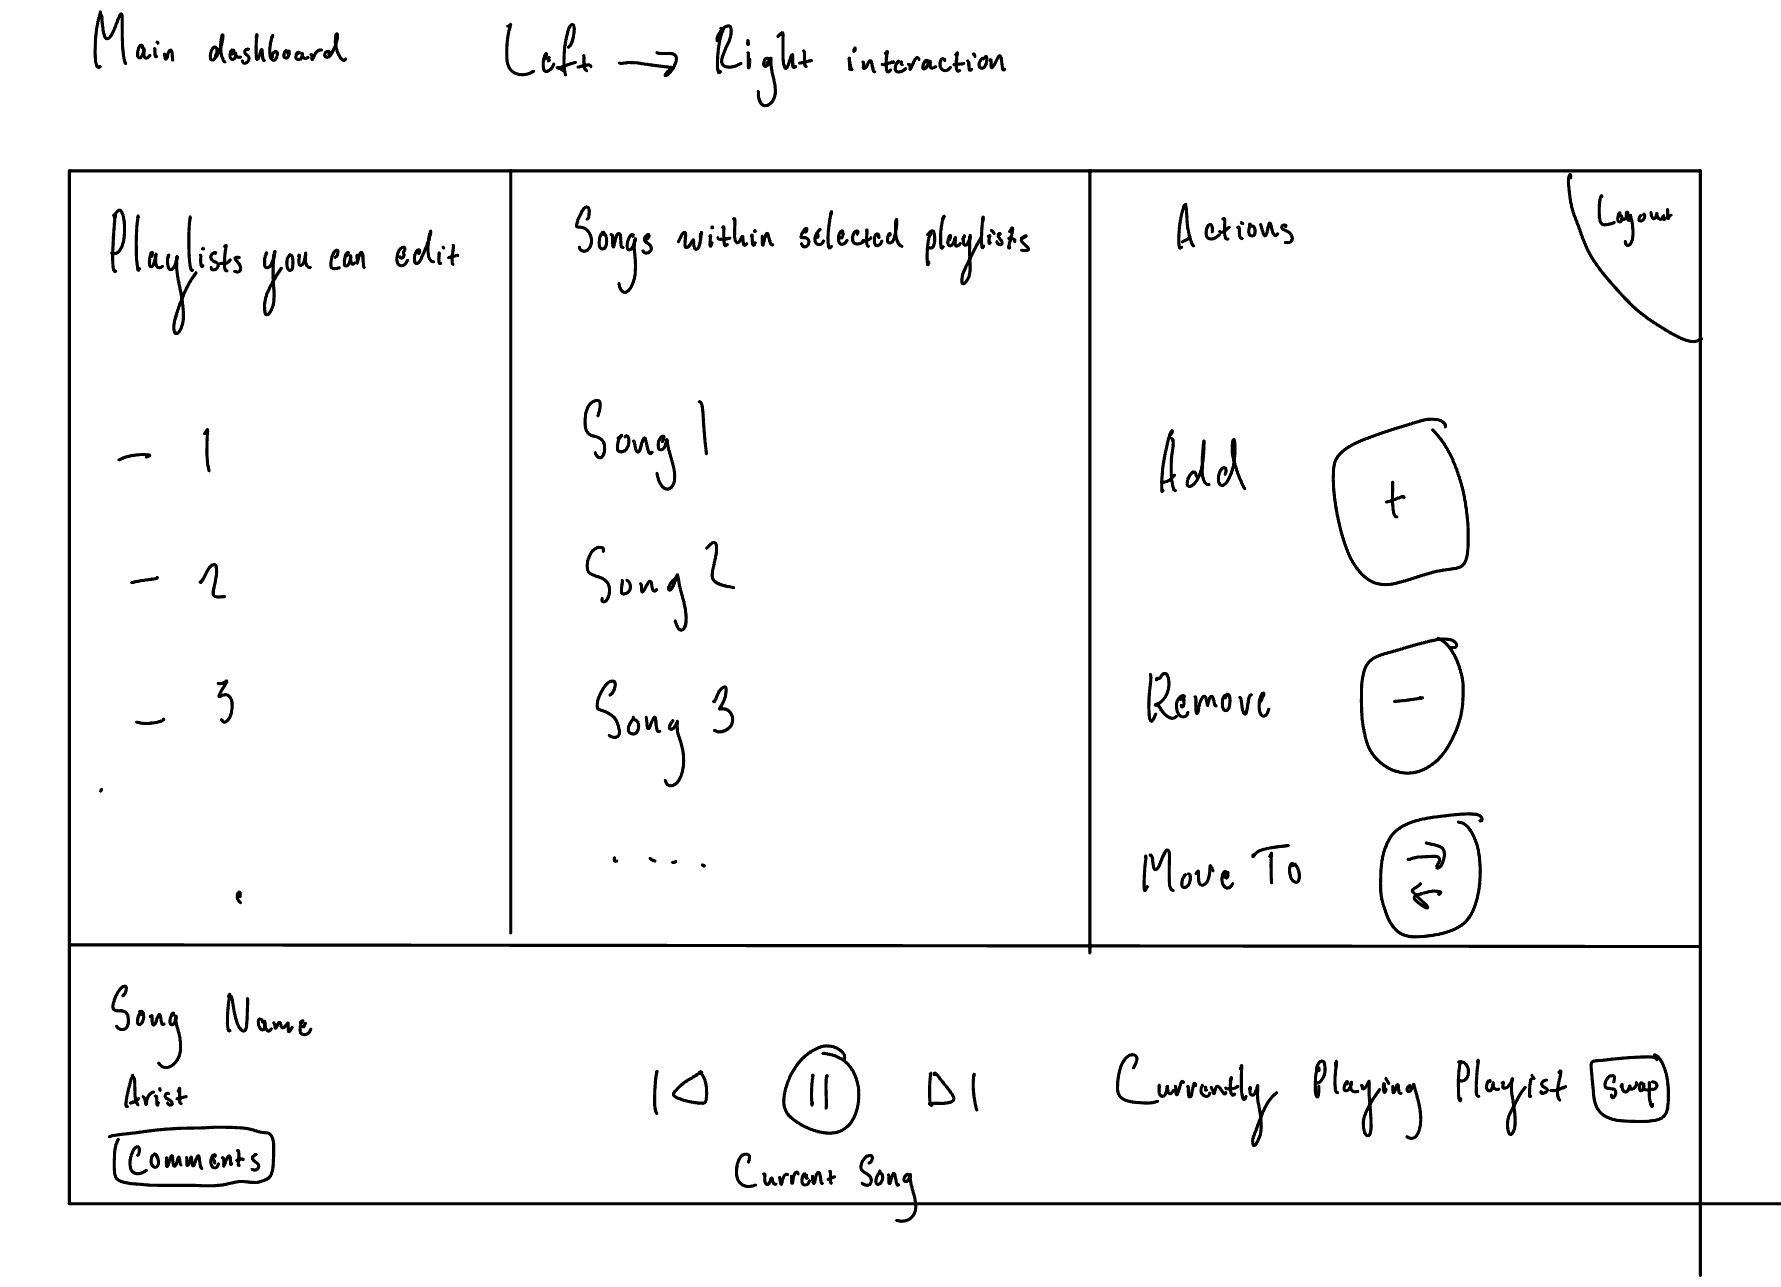 Main dashboard
Left → Right interaction
Playlists you can edit
- 1
- 2
- 3
Songs within selected playlists
Song 1
Song 2
Song 3
....
Actions
Logout
Add +
Remove -
Move To
Song Name
Arist
Comments
Current Song
Currently Playing Playist
Swap